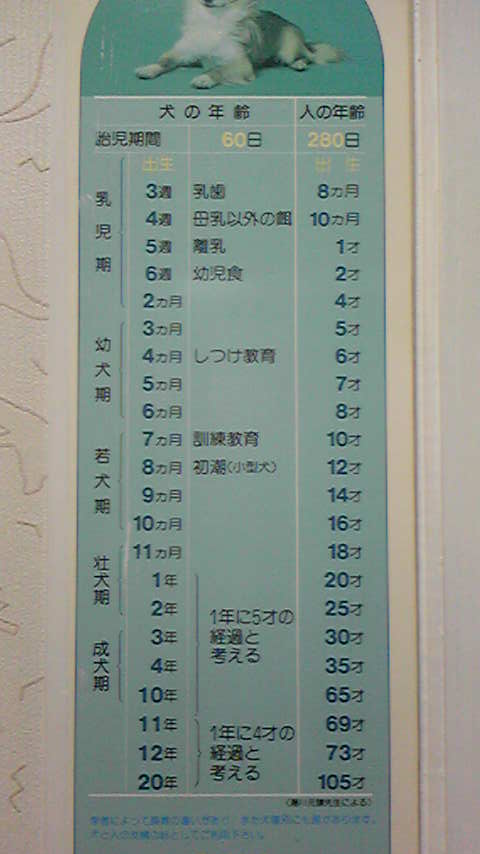 犬の年齢 人の年齢
胎児期間 60日 280日
出生 出生
乳児期
3週 乳歯 8カ月
4週 母乳以外の餌 10カ月
5週 離乳 1才
6週 幼児食 2才
2カ月 4才
幼犬期
3カ月 5才
4カ月 しつけ教育 6才
5カ月 7才
6カ月 8才
若犬期
7カ月 訓練教育 10才
8カ月 初潮(小型犬) 12才
9カ月 14才
10カ月 16才
壮犬期
11カ月 18才
1年 20才
2年 25才
1年に5才の
経過と
考える
成犬期
3年 30才
4年 35才
10年 65才
11年 69才
12年 73才
20年 105才
1年に4才の
経過と
考える
学者によって多少の違いがあり、また犬種別にも差があります。
犬と人の比較の目安としてご利用下さい。